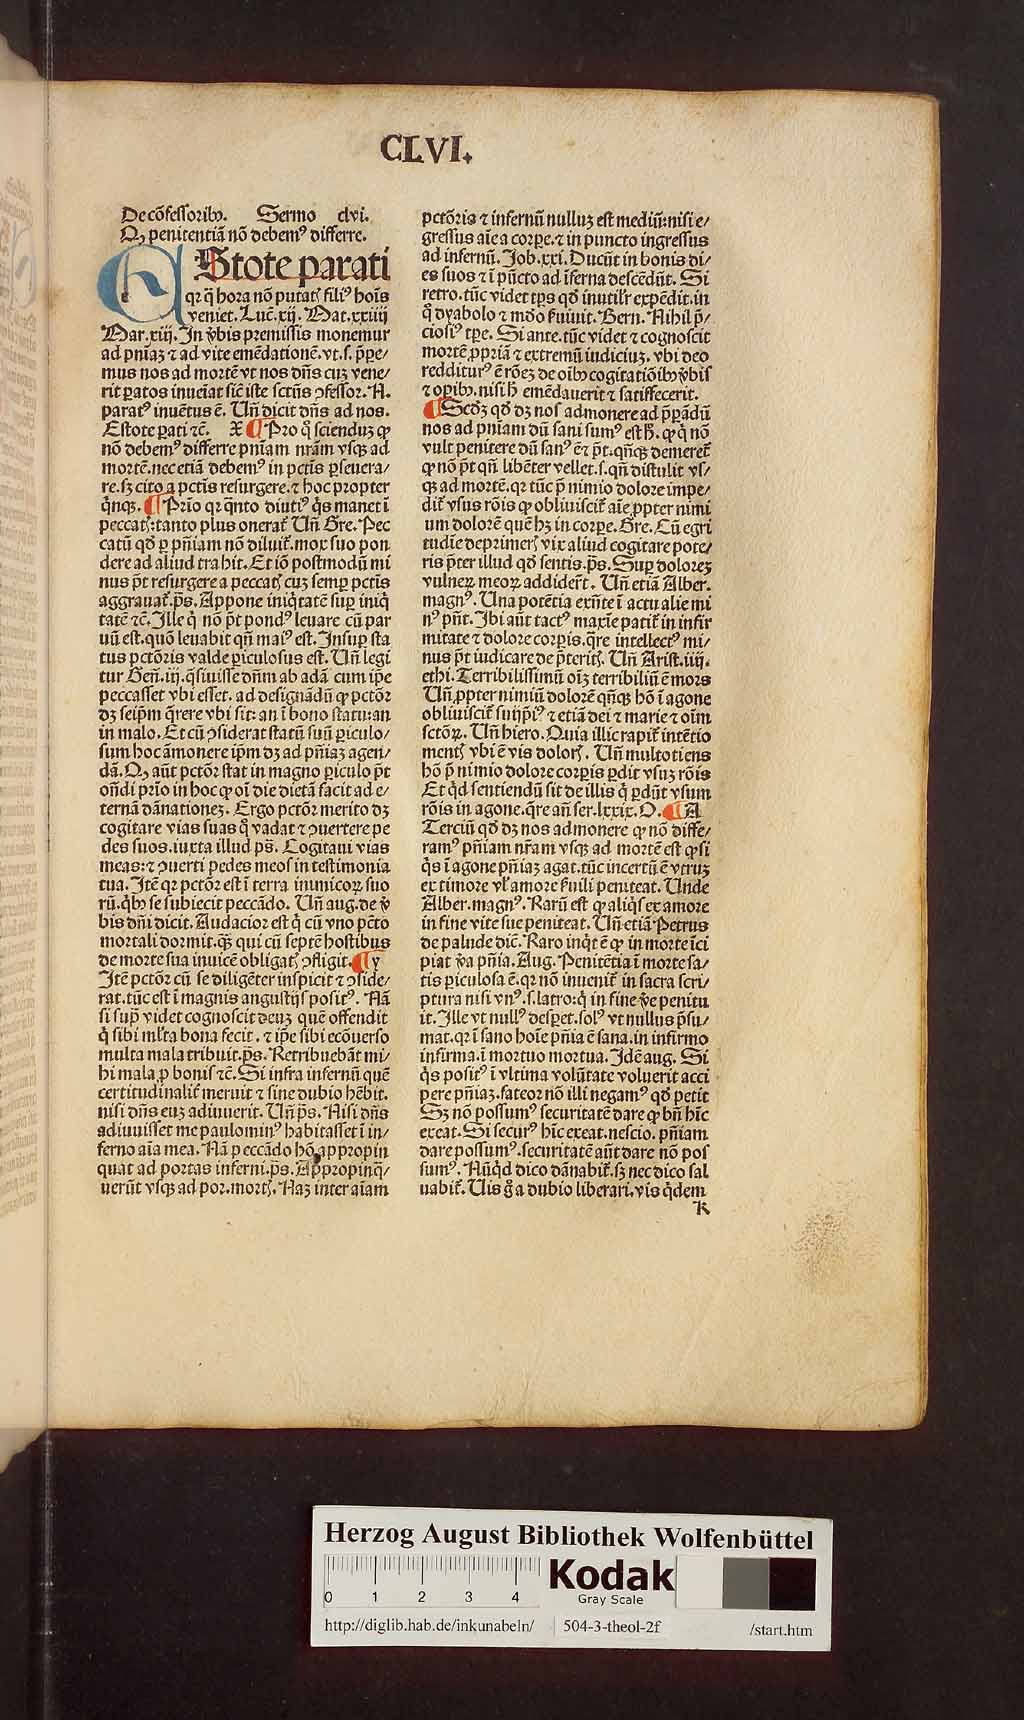 CLVI.
De cōfessoribꝯ. Sermo clvi.
Q penitentiā nō debemꝰ differre.
EStote parati
qr q̄ hora nō putatꝭ filiꝰ hoīs
veniet. Luč. xij. Mat. xxiiij
Mar. xiij. In v̄bis premissis monemur
ad pniaꝫ ⁊ ad vite emēdationē. vt. s. p̄pe⸗
mus nos ad mortē vt nos dn̄s cuꝫ vene⸗
rit ꝑatos inueīat sič iste sctūs ꝯfessor. N.
paratꝰ inuētus ē. Un̄ dicit dn̄s ad nos.
Estote ꝑati ⁊č. X ¶ Pro q̊ scienduꝫ ꝙ
nō debemꝰ differre pniam nr̄am vsqꝫ ad
mortē. nec etiā debemꝰ in pctīs ꝑseuera⸗
re. sꝫ cito a pctīs resurgere. ⁊ hoc propter
q̄nqꝫ. ¶ Prīo qr q̄nto diutiꝰ q̄s manet ī
peccatꝭ: tanto plus onerat̄. Un̄ Gre. Pec
catū qd̛ ꝑ pn̄iam nō diluit̄. mox suo pon
dere ad aliud trahit. Et iō postmodū mi
nus p̄t resurgere a peccatꝭ cuꝫ semꝑ pctīs
aggrauat̄. p̄s. Appone iniq̄tatē suꝑ iniq̄
tatē ⁊č. Ille q̄ nō p̄t pondꝰ leuare cū par
uū est. quō leuabit qn̄ maiꝰ est. Insuꝑ sta
tus pctōris valde ꝑiculosus est. Un̄ legi
tur Gen̄. iij. q̄siuisse dn̄m ab adā cum ip̄e
peccasset vbi esset. ad designādū ꝙ pctōr
dꝫ seip̄m q̄rere vbi sit: an ī bono statu: an
in malo. Et cū ꝯsiderat statū suū ꝑiculo⸗
sum hoc āmonere ip̄m dꝫ ad pn̄iaꝫ agen⸗
dā. Q aūt pctōr stat in magno ꝑiculo p̄t
on̄di prīo in hoc ꝙ oī die dietā facit ad e⸗
ternā dānationeꝫ. Ergo pctōr merito dꝫ
cogitare vias suas q̊ vadat ⁊ ꝯuertere pe
des suos. iuxta illud ps̄. Cogitaui vias
meas: ⁊ ꝯuerti pedes meos in testimonia
tua. Itē qr pctōr est ī terra inimicoꝝ suo
rū. q̄bꝯ se subiecit peccādo. Un̄ aug. de v̄
bis dn̄i dicit. Audacior est q̄ cū vno pčto
mortali dormit. qꝫ qui cū septē hostibus
de morte sua inuicē obligatꝭ ꝯfligit. ¶ Y
Itē pctōr cū se diligēter inspicit ⁊ ꝯside⸗
rat. tūc est ī magnis angustijs positꝰ. Nā
si sup̄ videt cognoscit deuꝫ quē offendit
q̄ sibi ml̄ta bona fecit. ⁊ ip̄e sibi ecōuerso
multa mala tribuit. p̄s. Retribuebāt mi⸗
hi mala ꝓ bonis ⁊č. Si infra infernū quē
certitudinalit̄ meruit ⁊ sine dubio hēbit.
nisi dn̄s euꝫ adiuuerit. Un̄ p̄s. Nisi dn̄s
adiuuisset me paulominꝰ habitasset ī in⸗
ferno aīa mea. Nā peccādo hō appropin
quat ad portas inferni. p̄s. Appropinq̄⸗
uerūt vsqꝫ ad por. mortꝭ. Naꝫ inter aīam
pctōris ⁊ infernū nulluꝫ est mediū: nisi e⸗
gressus aīe a corꝑe. ⁊ in puncto ingressus
ad infernū. Job. xxi. Ducūt in bonis di⸗
es suos ⁊ ī pūcto ad īferna descēdūt. Si
retro. tūc videt tps̄ qd̛ inutilr̄ expēdit. in
q̊ dyabolo ⁊ mūdo s̄uiuit. Bern. Nihil p̄⸗
ciosiꝰ tꝑe. Si ante. tūc videt ⁊ cognoscit
mortē ꝓpriā ⁊ extremū iudiciuꝫ. vbi deo
redditurꝰ ē rōeꝫ de oībꝯ cogitatiōibꝯ v̄bis
⁊ oꝑibꝯ. nisi h̄ emēdauerit ⁊ satiffecerit.
¶ Scd̛ꝫ qd̛ dꝫ nos admonere ad p̄ꝑādū
nos ad pniam dū sani sumꝰ est h̄. ꝙ q̄ nō
vult penitere dū sanꝰ ē ⁊ p̄t. qn̄qꝫ demeret̄
ꝙ nō p̄t qn̄ libēter vellet. s. qn̄ distulit vs⸗
qꝫ ad mortē. qr tūc p̄ nimio dolore impe⸗
dit̄ vsus rōis ꝙ obliuiscit̄ aīe ꝓpter nimi
um dolorē quē hꝫ in corꝑe. Gre. Cū egri
tudīe deprimerꝭ vix aliud cogitare pote⸗
ris p̄ter illud qd̛ sentis. p̄s. Suꝑ doloreꝫ
vulneꝝ meoꝝ addider̄t. Un̄ etiā Alber.
magnꝰ. Una potētia exn̄te ī actu alie mi
nꝰ pn̄t. Ibi aūt tactꝰ maxīe patit̄ in infir
mitate ⁊ dolore corꝑis. q̄re intellectꝰ mi⸗
nus p̄t iudicare de p̄teritꝭ. Un̄ Arist. iij.
ethi. Terribilissimū oīꝫ terribiliū ē mors
Un̄ ꝓpter nimiū dolorē qn̄qꝫ hō ī agone
obliuiscit̄ suijp̄iꝰ ⁊ etiā dei ⁊ marie ⁊ oīm
sctōꝝ. Un̄ hiero. Quia illic rapit̄ intētio
mentꝭ vbi ē vis dolorꝭ. Un̄ multotiens
hō p̄ nimio dolore corꝑis ꝑdit vsuꝫ rōis
Et q̄d sentiendū sit de illis q̄ ꝑdūt vsum
rōis in agone. q̄re an̄ ser. lxxix. O. ¶ A
Terciū qd̛ dꝫ nos admonere ꝙ nō diffe⸗
ramꝰ pn̄iam nr̄am vsqꝫ ad mortē est ꝙ si
q̄s ī agone pn̄iaꝫ agat. tūc incertū ē vtruꝫ
ex timore vl̄ amore s̄uili peniteat. Unde
Alber. magnꝰ. Rarū est ꝙ aliq̄s ex amore
in fine vite sue peniteat. Un̄ etiā Petrus
de palude dič. Raro inq̄t ē ꝙ in morte īci
piat v̄a pn̄ia. Aug. Penitētia ī morte sa⸗
tis ꝑiculosa ē. qr nō inuenit̄ in sacra scri⸗
ptura nisi vnꝰ. s. latro: q̄ in fine v̄e penitu
it. Ille vt nullꝰ desꝑet. solꝰ vt nullus p̄su⸗
mat. qr ī sano hoīe pn̄ia ē sana. in infirmo
infirma. ī mortuo mortua. Idē aug. Si
q̄s positꝰ ī vltima volūtate voluerit acci
pere pn̄iaꝫ. fateor nō illi negamꝰ qd̛ petit
Sꝫ nō possumꝰ securitatē dare ꝙ bn̄ hīc
exeat. Si securꝰ hīc exeat. nescio. pn̄iam
dare possumꝰ. securitatē aūt dare nō pos
sumꝰ. Nūq̄d dico dānabit̄. sꝫ nec dico sal
uabit̄. Uis g̊ a dubio liberari. vis q̄dem
k
Herzog August Bibliothek Wolfenbüttel
0 1 2 3 4
Kodak
Gray Scale
http://diglib.hab.de/inkunabeln/ 504-3-theol-2f /start.htm